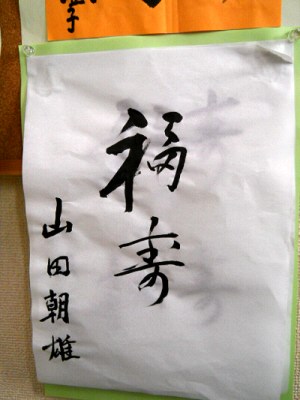 福寿
山田朝雄